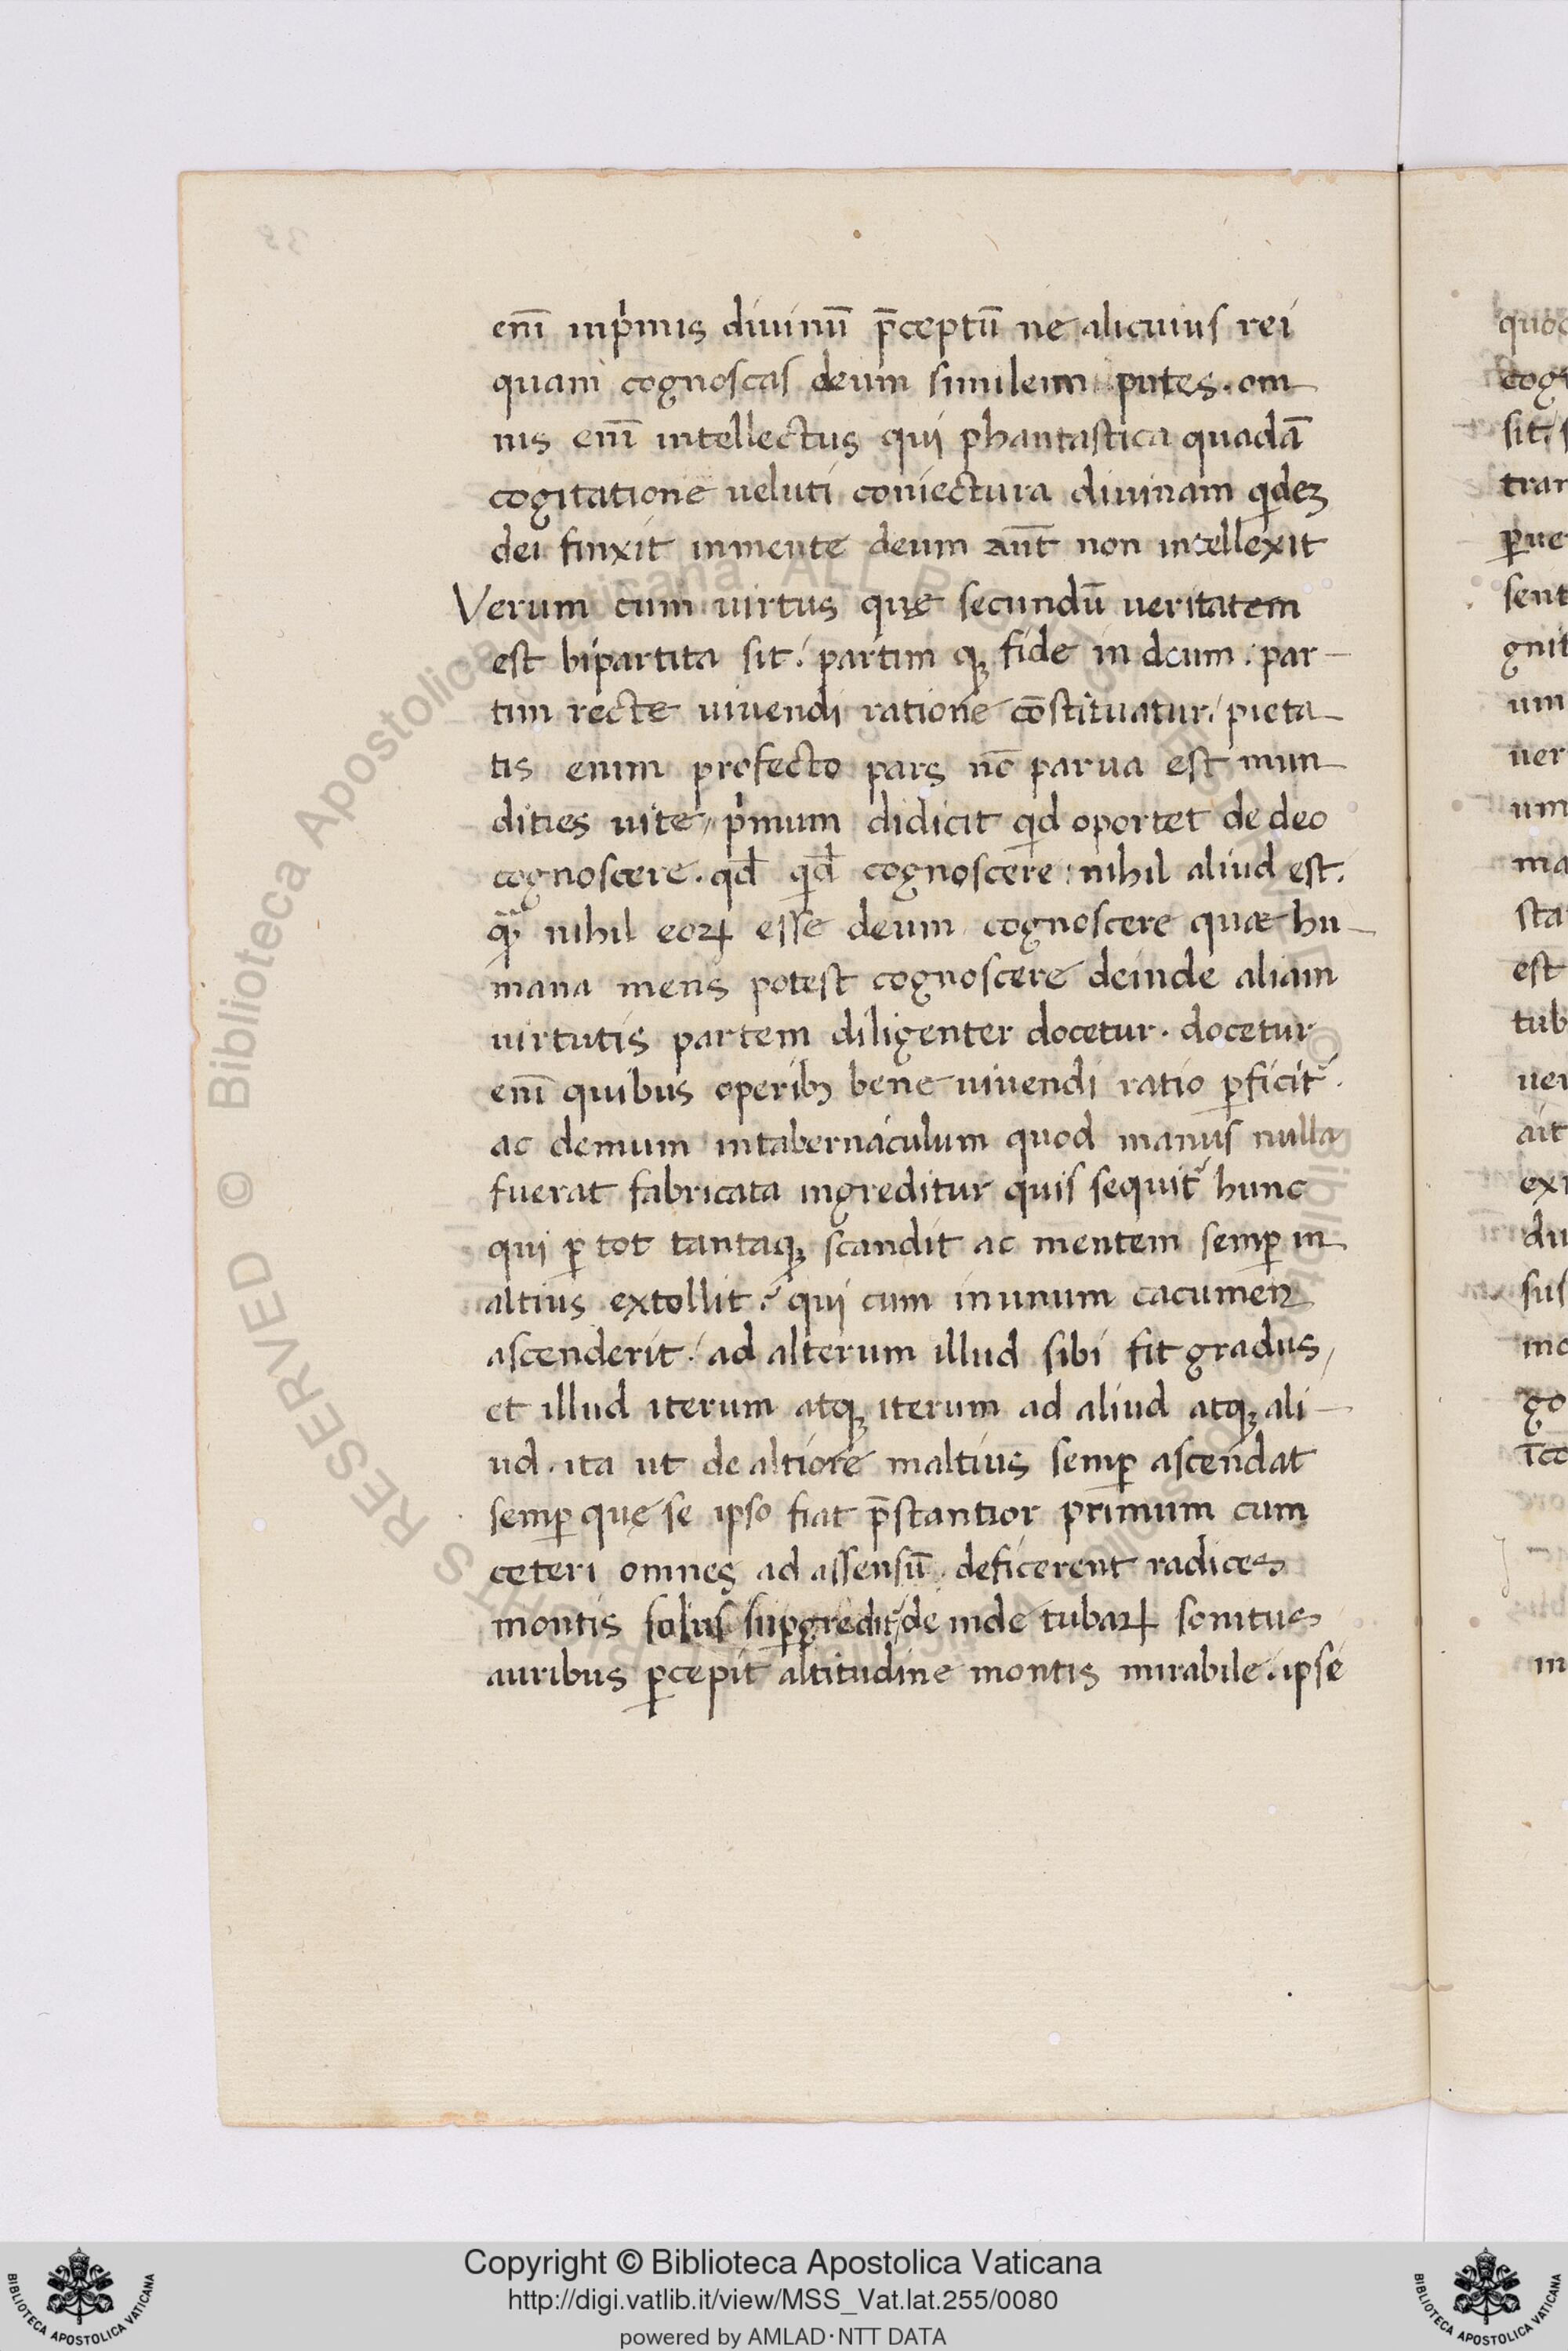 enī inp̄mis diuinū p̄ceptū ne alicuius rei
quam cognoscas deum similem putes. om
nis enī intellectus qui phantastica quadā
cogitatione ueluti coniectura diuinam qdeꝫ
dei finxit inmente deum aūt non intellexit
Verum cum uirtus quę secundū ueritatem
est bipartita sit: partim qꝫ fide in deum: par-
tim recte uiuendi ratione cōstituatur: pieta
tis enim profecto pars nō parua est mun
dities uite, p̍mum didicit qd oportet de deo
cognoscere. qd̄ qd̄ cognoscere: nihil aliud est.
ꝙ̄ nihil eoꝝ esse deum cognoscere quæ hu-
mana mens potest cognoscere deinde aliam
uirtutis partem diligenter docetur. docetur
enī quibus operibꝫ bene uiuendi ratio ꝑficit᷑.
ac demum intabernaculum quod manus nulla
fuerat fabricata ingreditur quis sequit᷑ hunc
qui ꝑ tot tantaqꝫ scandit ac mentem semꝑ in
altius extollit? qui cum inunum cacumen
ascenderit: ad alterum illud sibi fit gradus,
et illud iterum atqꝫ iterum ad aliud atqꝫ ali-
ud. ita ut de altiore inaltius semꝑ ascendat
semꝑ quę se ipso fiat p̄stantior primum cum
ceteri omnes ad assensū deficerent radices
montis solus suꝑgredit᷑, de inde tubaꝝ sonitus
auribus ꝑcepit altitudine montis mirabile. ipse
quo
cog
sit,
tran
ꝑue
sent
gnit
um
uer
um
ma
sta
est
tub
uer
ait
ex
du
sus
mo
go
īco
in
© Biblioteca Apostolica Vaticana ALL RIGHTS RESERVED
Copyright © Biblioteca Apostolica Vaticana
http://digi.vatlib.it/view/MSS_Vat.lat.255/0080
powered by AMLAD·NTT DATA
BIBLIOTECA APOSTOLICA VATICANA
BIBLIOTECA APOSTOLICA VATICANA